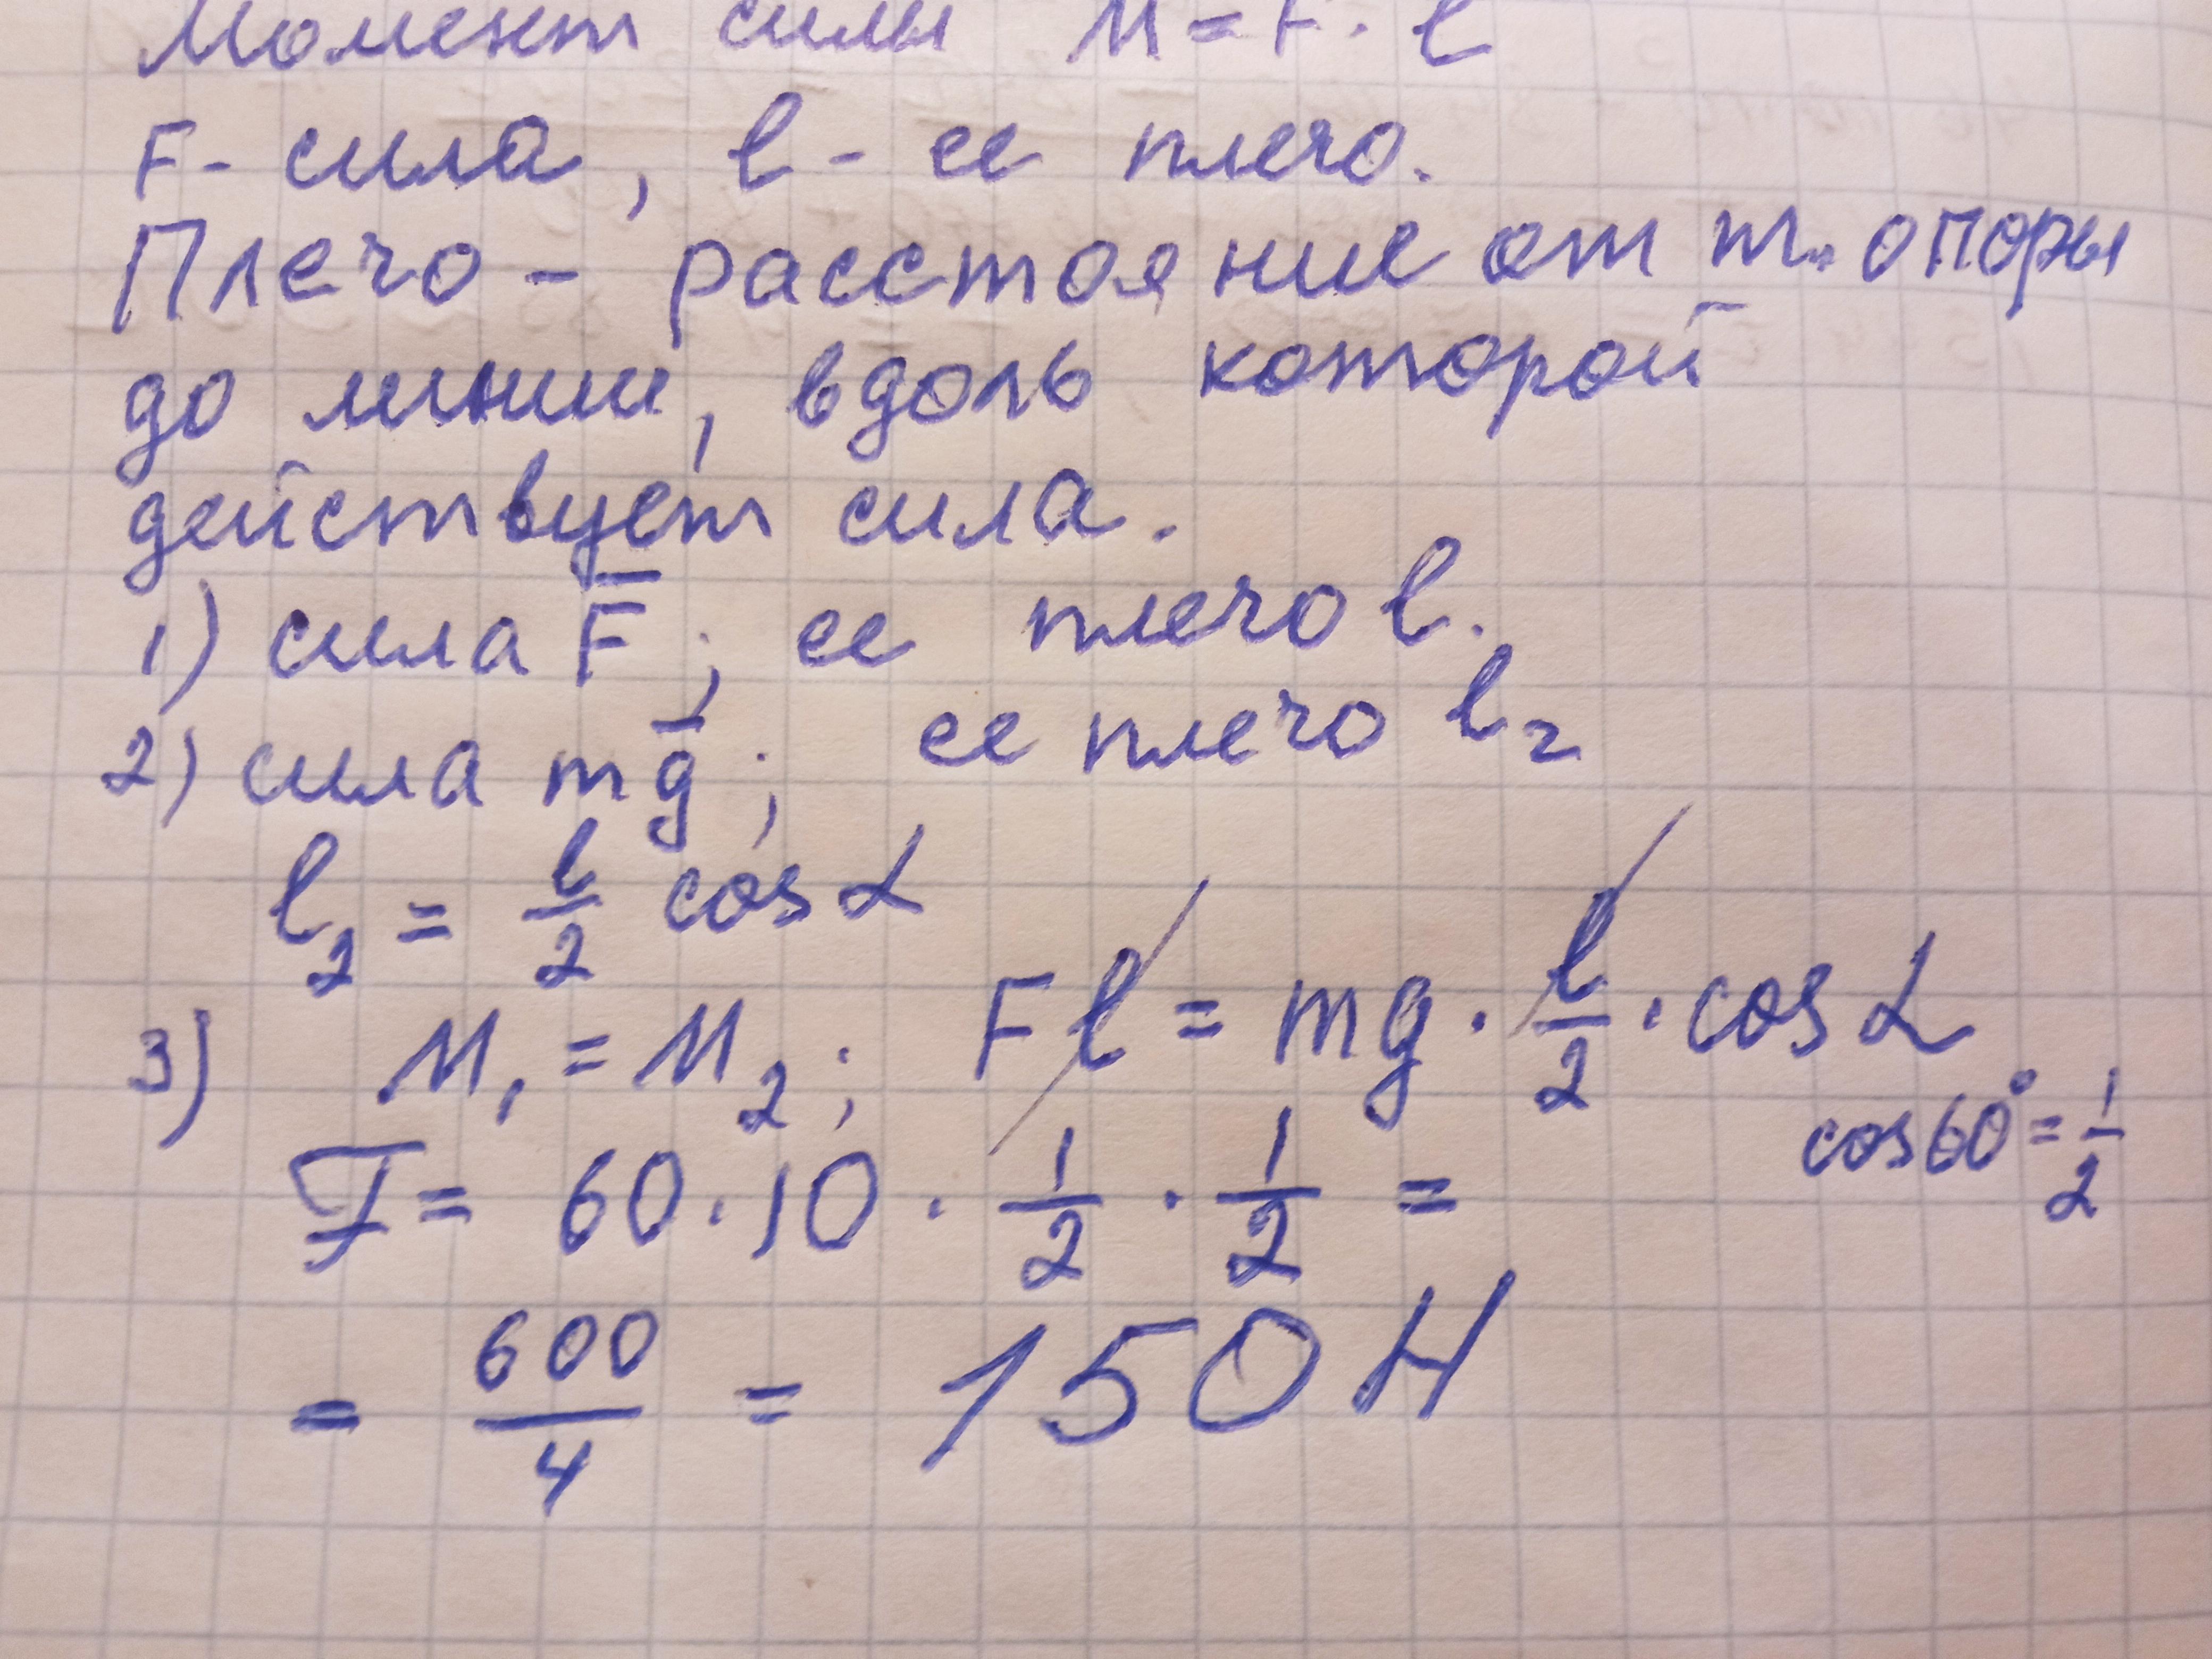 Момент силы M = F · l
F - сила, l - ее плечо.
Плечо - расстояние от т. опоры
до линии, вдоль которой
действует сила.
1) сила F̅; ее плечо l.
2) сила mg̅; ее плечо l₂
l₂ = l/2 cos α
3) M₁ = M₂; Fl = mg · l/2 · cos α
cos 60° = 1/2
F = 60 · 10 · 1/2 · 1/2 =
= 600/4 = 150 Н